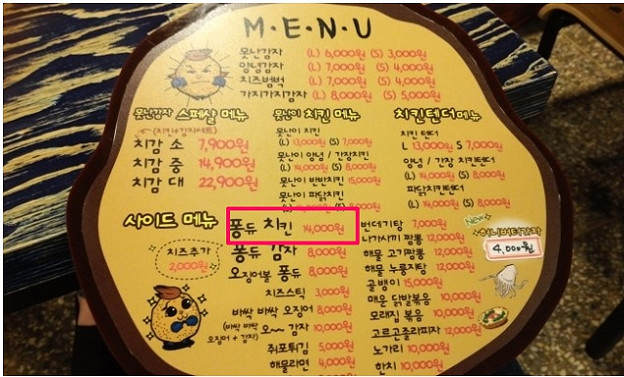 M·E·N·U
못난감자 (L) 6,000원 (S) 3,000원
양념감자 (L) 7,000원 (S) 4,000원
치즈범벅 (L) 7,000원 (S) 4,000원
가지가지감자 (L) 8,000원 (S) 5,000원
못난감자 스페샬 메뉴
치감 소 7,900원
치감 중 14,900원
치감 대 22,900원
못난이 치킨 메뉴
못난이 치킨
(L) 13,000원 (S) 7,000원
못난이 양념 / 간장치킨
(L) 14,000원 (S) 8,000원
못난이 반반치킨 15,000원
못난이 파닭치킨
(S) 8,000원
치킨텐더메뉴
치킨 텐더
L 13,000원 S 7,000원
양념 / 간장 치킨텐더
(L) 14,000원 (S) 8,000원
파닭치킨텐더
(L) 14,000원 (S) 8,000원
사이드 메뉴
치즈추가
2,000원
퐁듀 치킨 14,000원
퐁듀 감자 8,000원
오징어볼 퐁듀 8,000원
치즈스틱 3,000원
바싹 바싹 오징어 8,000원
(바싹 바싹 오징어 + 감자) 오~~ 감자 10,000원
쥐포튀김 5,000원
해물라면 4,000원
번데기탕 7,000원
나가사끼 짬뽕 12,000원
해물 고기짬뽕 12,000원
해물 누룽지탕 12,000원
골뱅이 15,000원
매운 닭발볶음 10,000원
모래집 볶음 10,000원
고르곤졸라피자 12,000원
노가리 10,000원
한치 10,000원
New
허니버터감자
4,000원